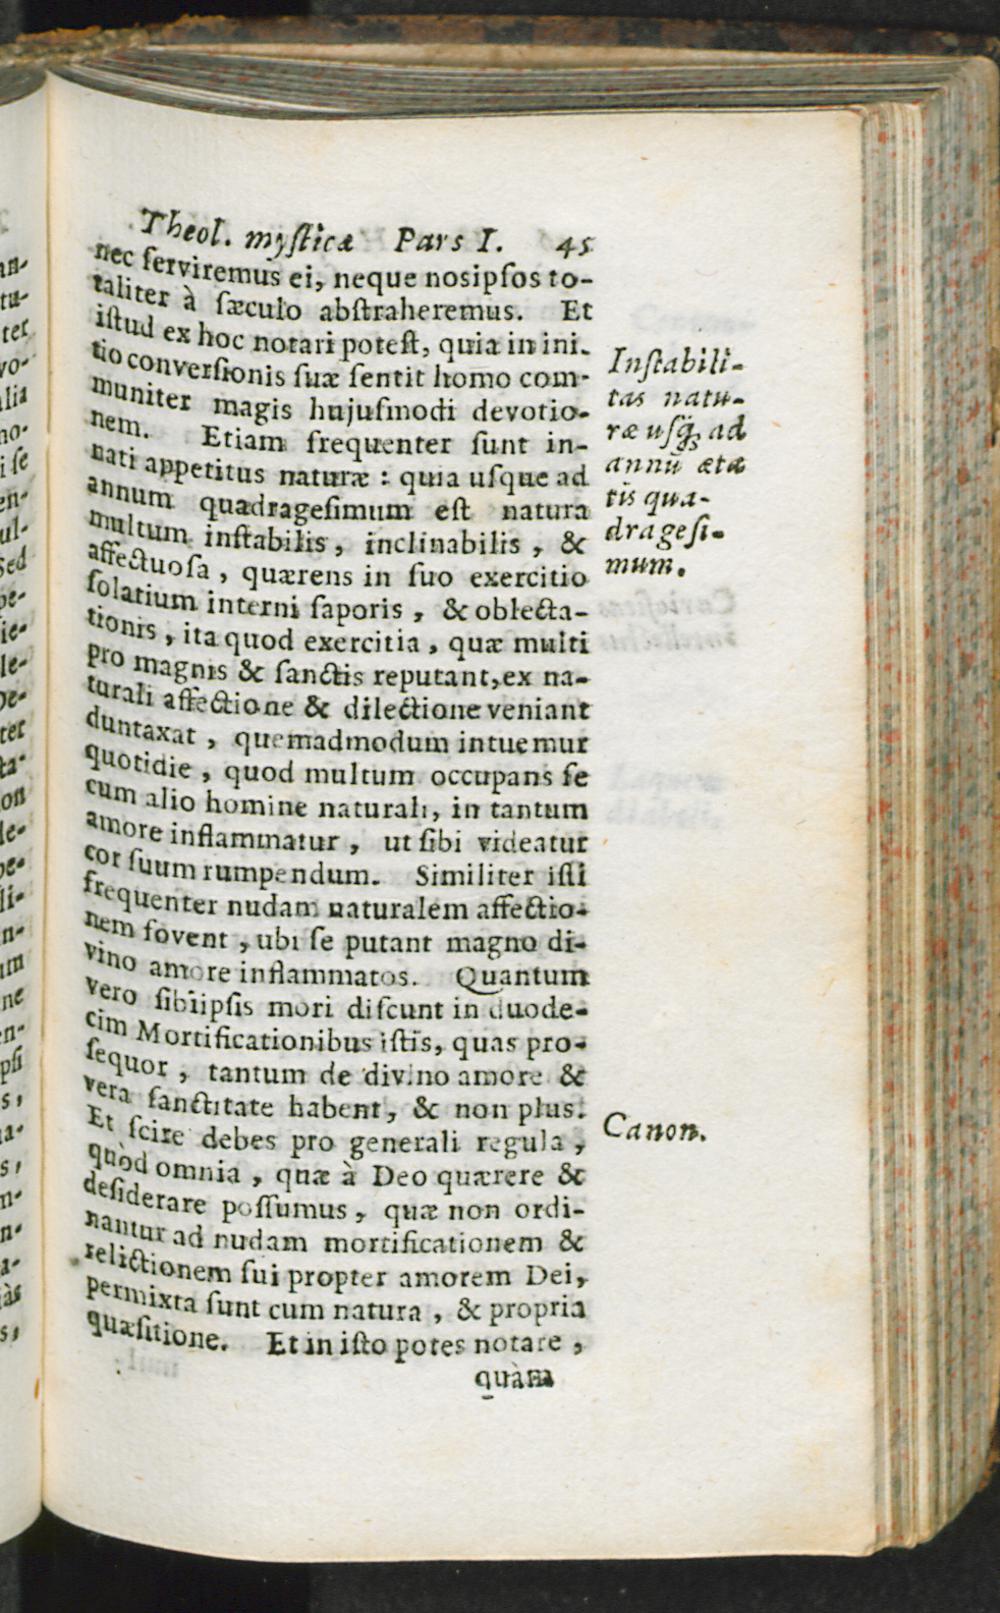 Theol. mysticæ Pars I. 45
nec serviremus ei, neque nosipsos to-
taliter à sæculo abstraheremus. Et
istud ex hoc notari potest, quia in ini-
tio conversionis suæ sentit homo com-
muniter magis hujusmodi devotio-
nem. Etiam frequenter sunt in-
nati appetitus naturæ : quia usque ad
annum quadragesimum est natura
multum instabilis, inclinabilis, &
affectuosa, quærens in suo exercitio
solatium interni saporis, & oblecta-
tionis, ita quod exercitia, quæ multi
pro magnis & sanctis reputant, ex na-
turali affectione & dilectione veniant
duntaxat, quemadmodum intuemur
quotidie, quod multum occupans se
cum alio homine naturali, in tantum
amore inflammatur, ut sibi videatur
cor suum rumpendum. Similiter isti
frequenter nudam naturalem affectio-
nem fovent, ubi se putant magno di-
vino amore inflammatos. Quantum
vero sibiipsis mori discunt in duode-
cim Mortificationibus istis, quas pro-
sequor, tantum de divino amore &
vera sanctitate habent, & non plus.
Et scire debes pro generali regula,
quòd omnia, quæ à Deo quærere &
desiderare possumus, quæ non ordi-
nantur ad nudam mortificationem &
relictionem sui propter amorem Dei,
permixta sunt cum natura, & propria
quæsitione. Et in isto potes notare,
quàm
Instabili-
tas natu-
ræ usq; ad
annũ ætæ
tis qua-
dragesi-
mum.
Canon.